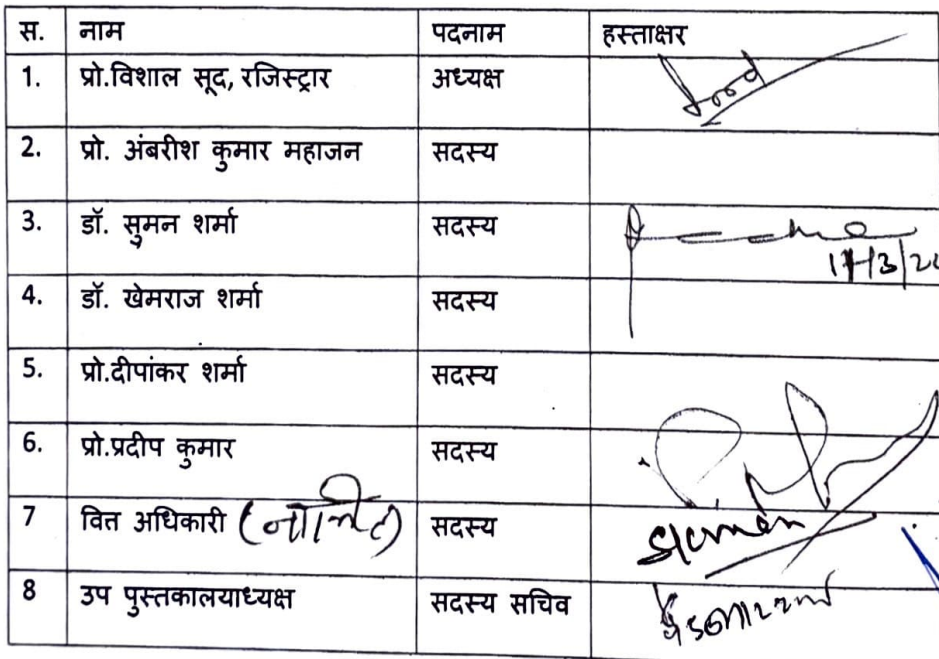 स. नाम पदनाम हस्ताक्षर
1. प्रो.विशाल सूद, रजिस्ट्रार अध्यक्ष
2. प्रो. अंबरीश कुमार महाजन सदस्य
3. डॉ. सुमन शर्मा सदस्य
4. डॉ. खेमराज शर्मा सदस्य
5. प्रो.दीपांकर शर्मा सदस्य
6. प्रो.प्रदीप कुमार सदस्य
7 वित्त अधिकारी सदस्य
8 उप पुस्तकालयाध्यक्ष सदस्य सचिव